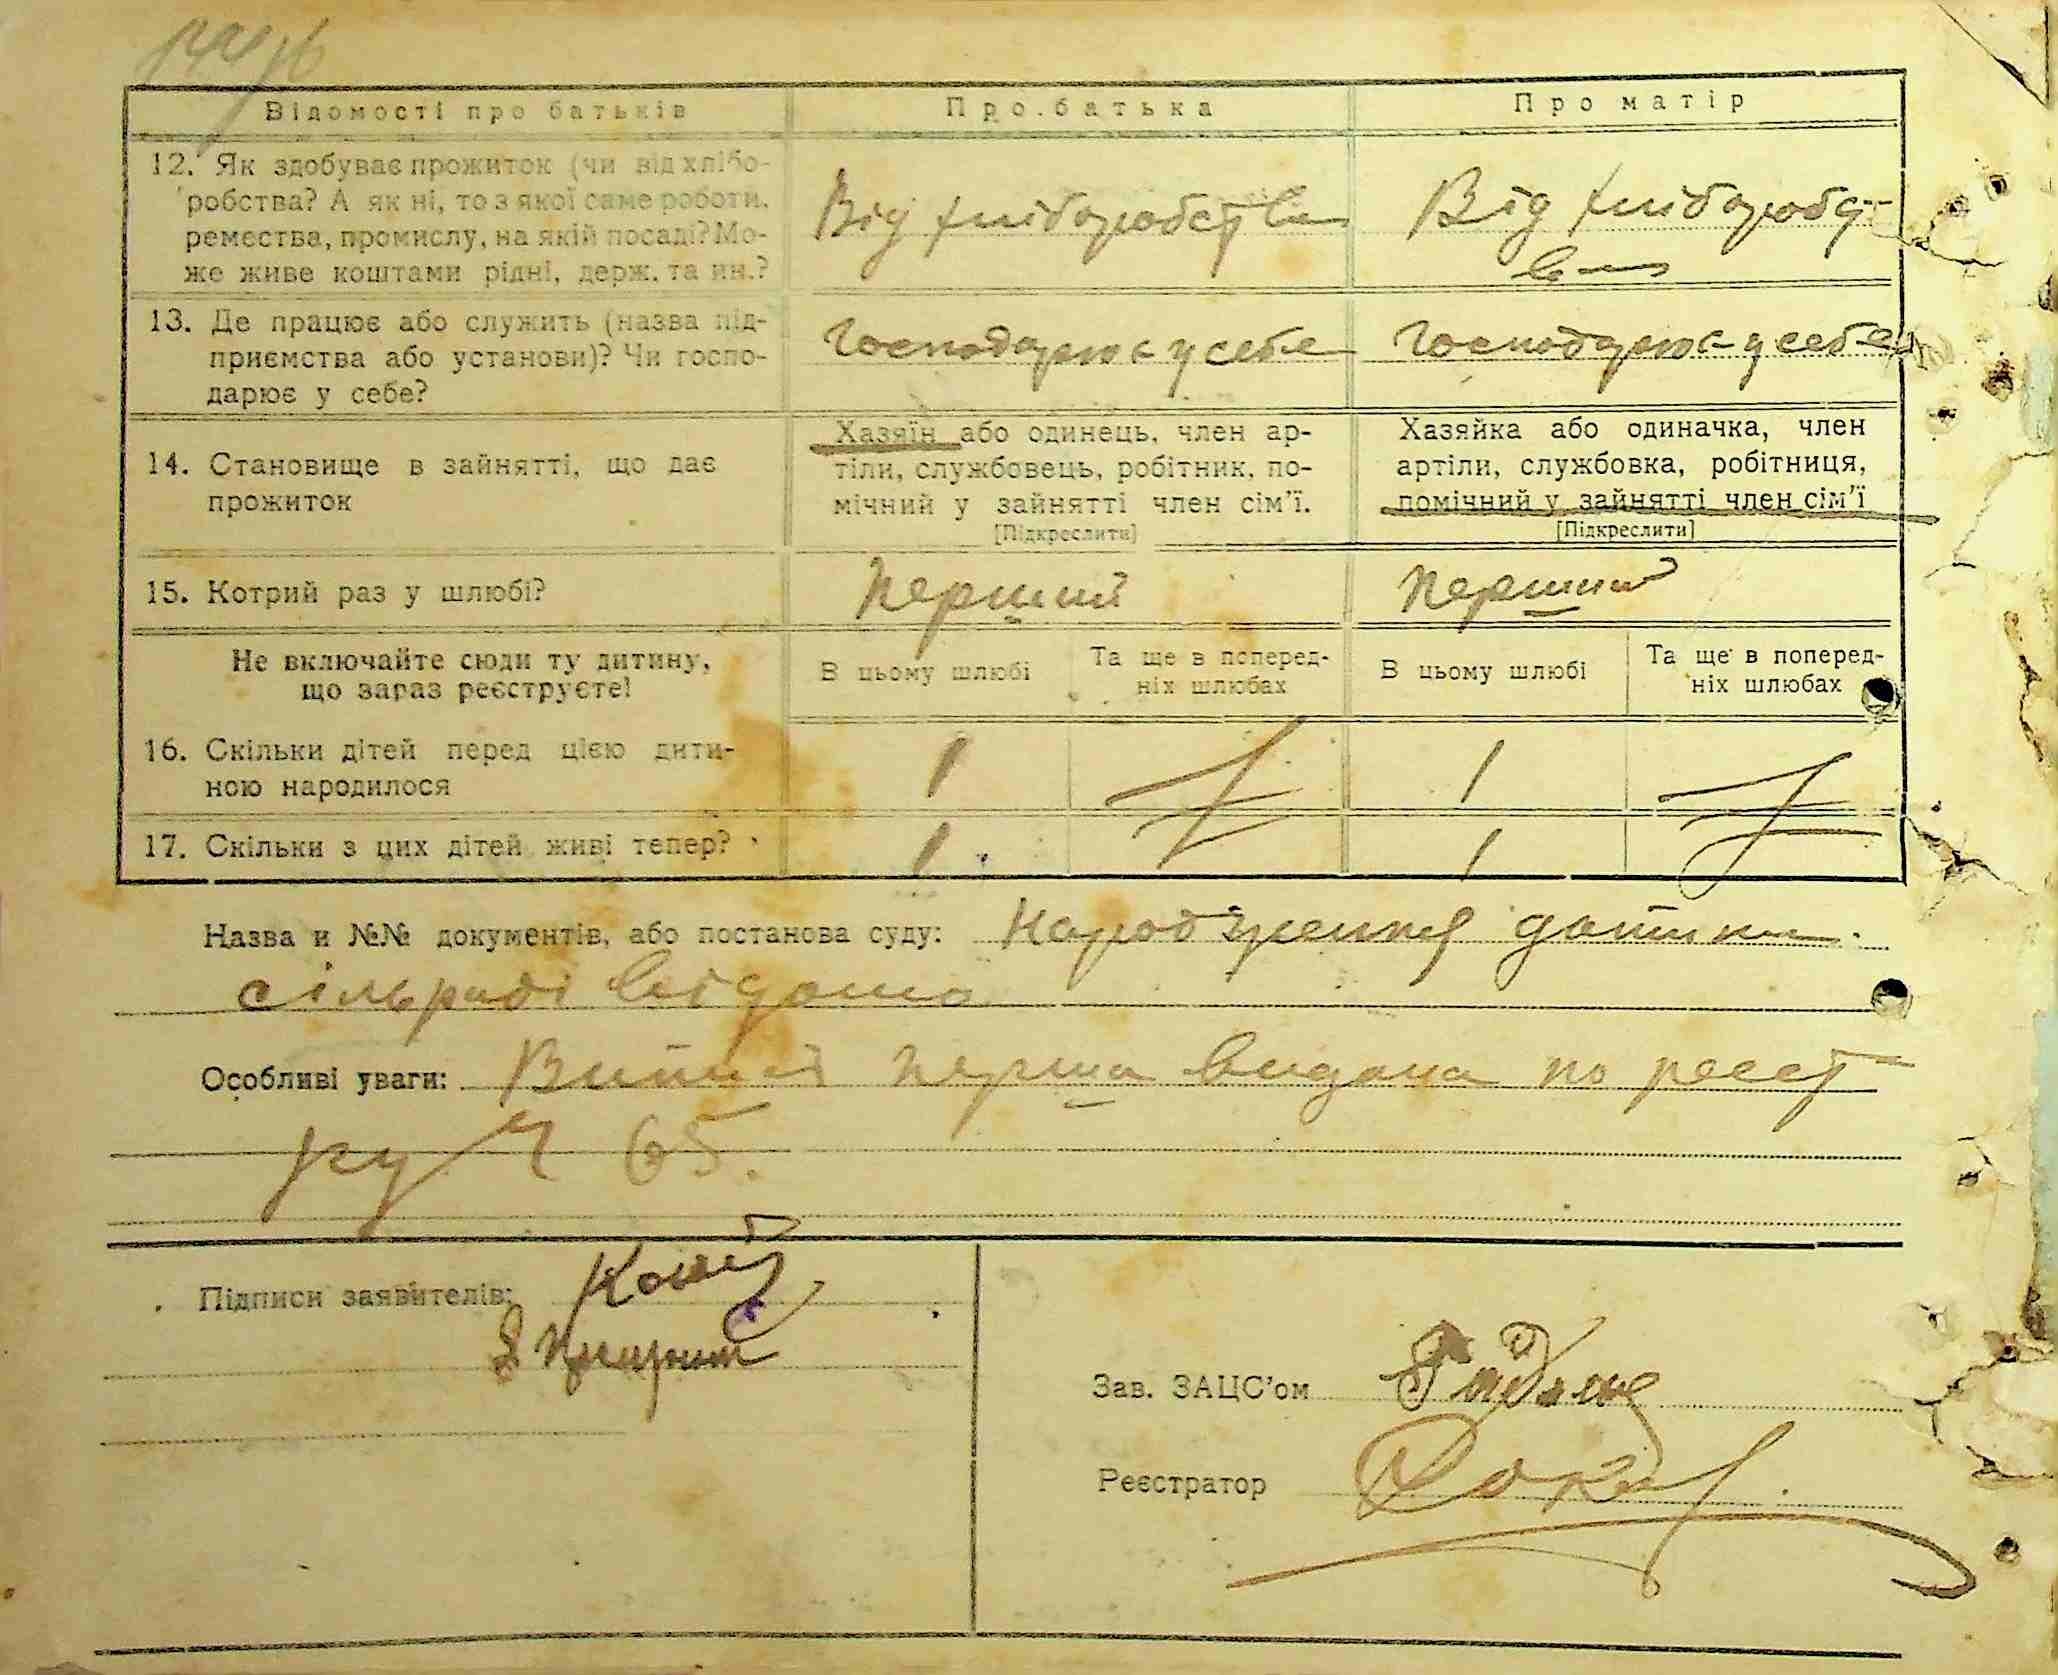 Відомості про батьків Про батька Про матір
12. Як здобуває прожиток (чи від хлібо-
робства? А як ні, то з якої саме роботи,
ремества, промислу, на якій посаді? Мо-
же живе коштами рідні, держ. та ин.?
Від хліборобства
Від хліборобс-
тва
13. Де працює або служить (назва під-
приємства або установи)? Чи госпо-
дарює у себе?
Господарює у себе
Господарює у себе
14. Становище в зайнятті, що дає
прожиток
Хазяїн або одинець, член ар-
тіли, службовець, робітник, по-
мічний у зайнятті член сім'ї.
[Підкреслити]
Хазяйка або одиначка, член
артіли, службовка, робітниця,
помічний у зайнятті член сім'ї
[Підкреслити]
15. Котрий раз у шлюбі? Перший Перший
Не включайте сюди ту дитину,
що зараз реєструєте!
В цьому шлюбі
Та ще в поперед-
ніх шлюбах
В цьому шлюбі
Та ще в поперед-
ніх шлюбах
16. Скільки дітей перед цією дити-
ною народилося
1 1
17. Скільки з цих дітей живі тепер? 1 1
Назва и №№ документів, або постанова суду: Народження
сільраді
Особливі уваги: перша видана по реєст
ру 65.
Підписи заявителів:
Зав. ЗАЦС'ом
Реєстратор